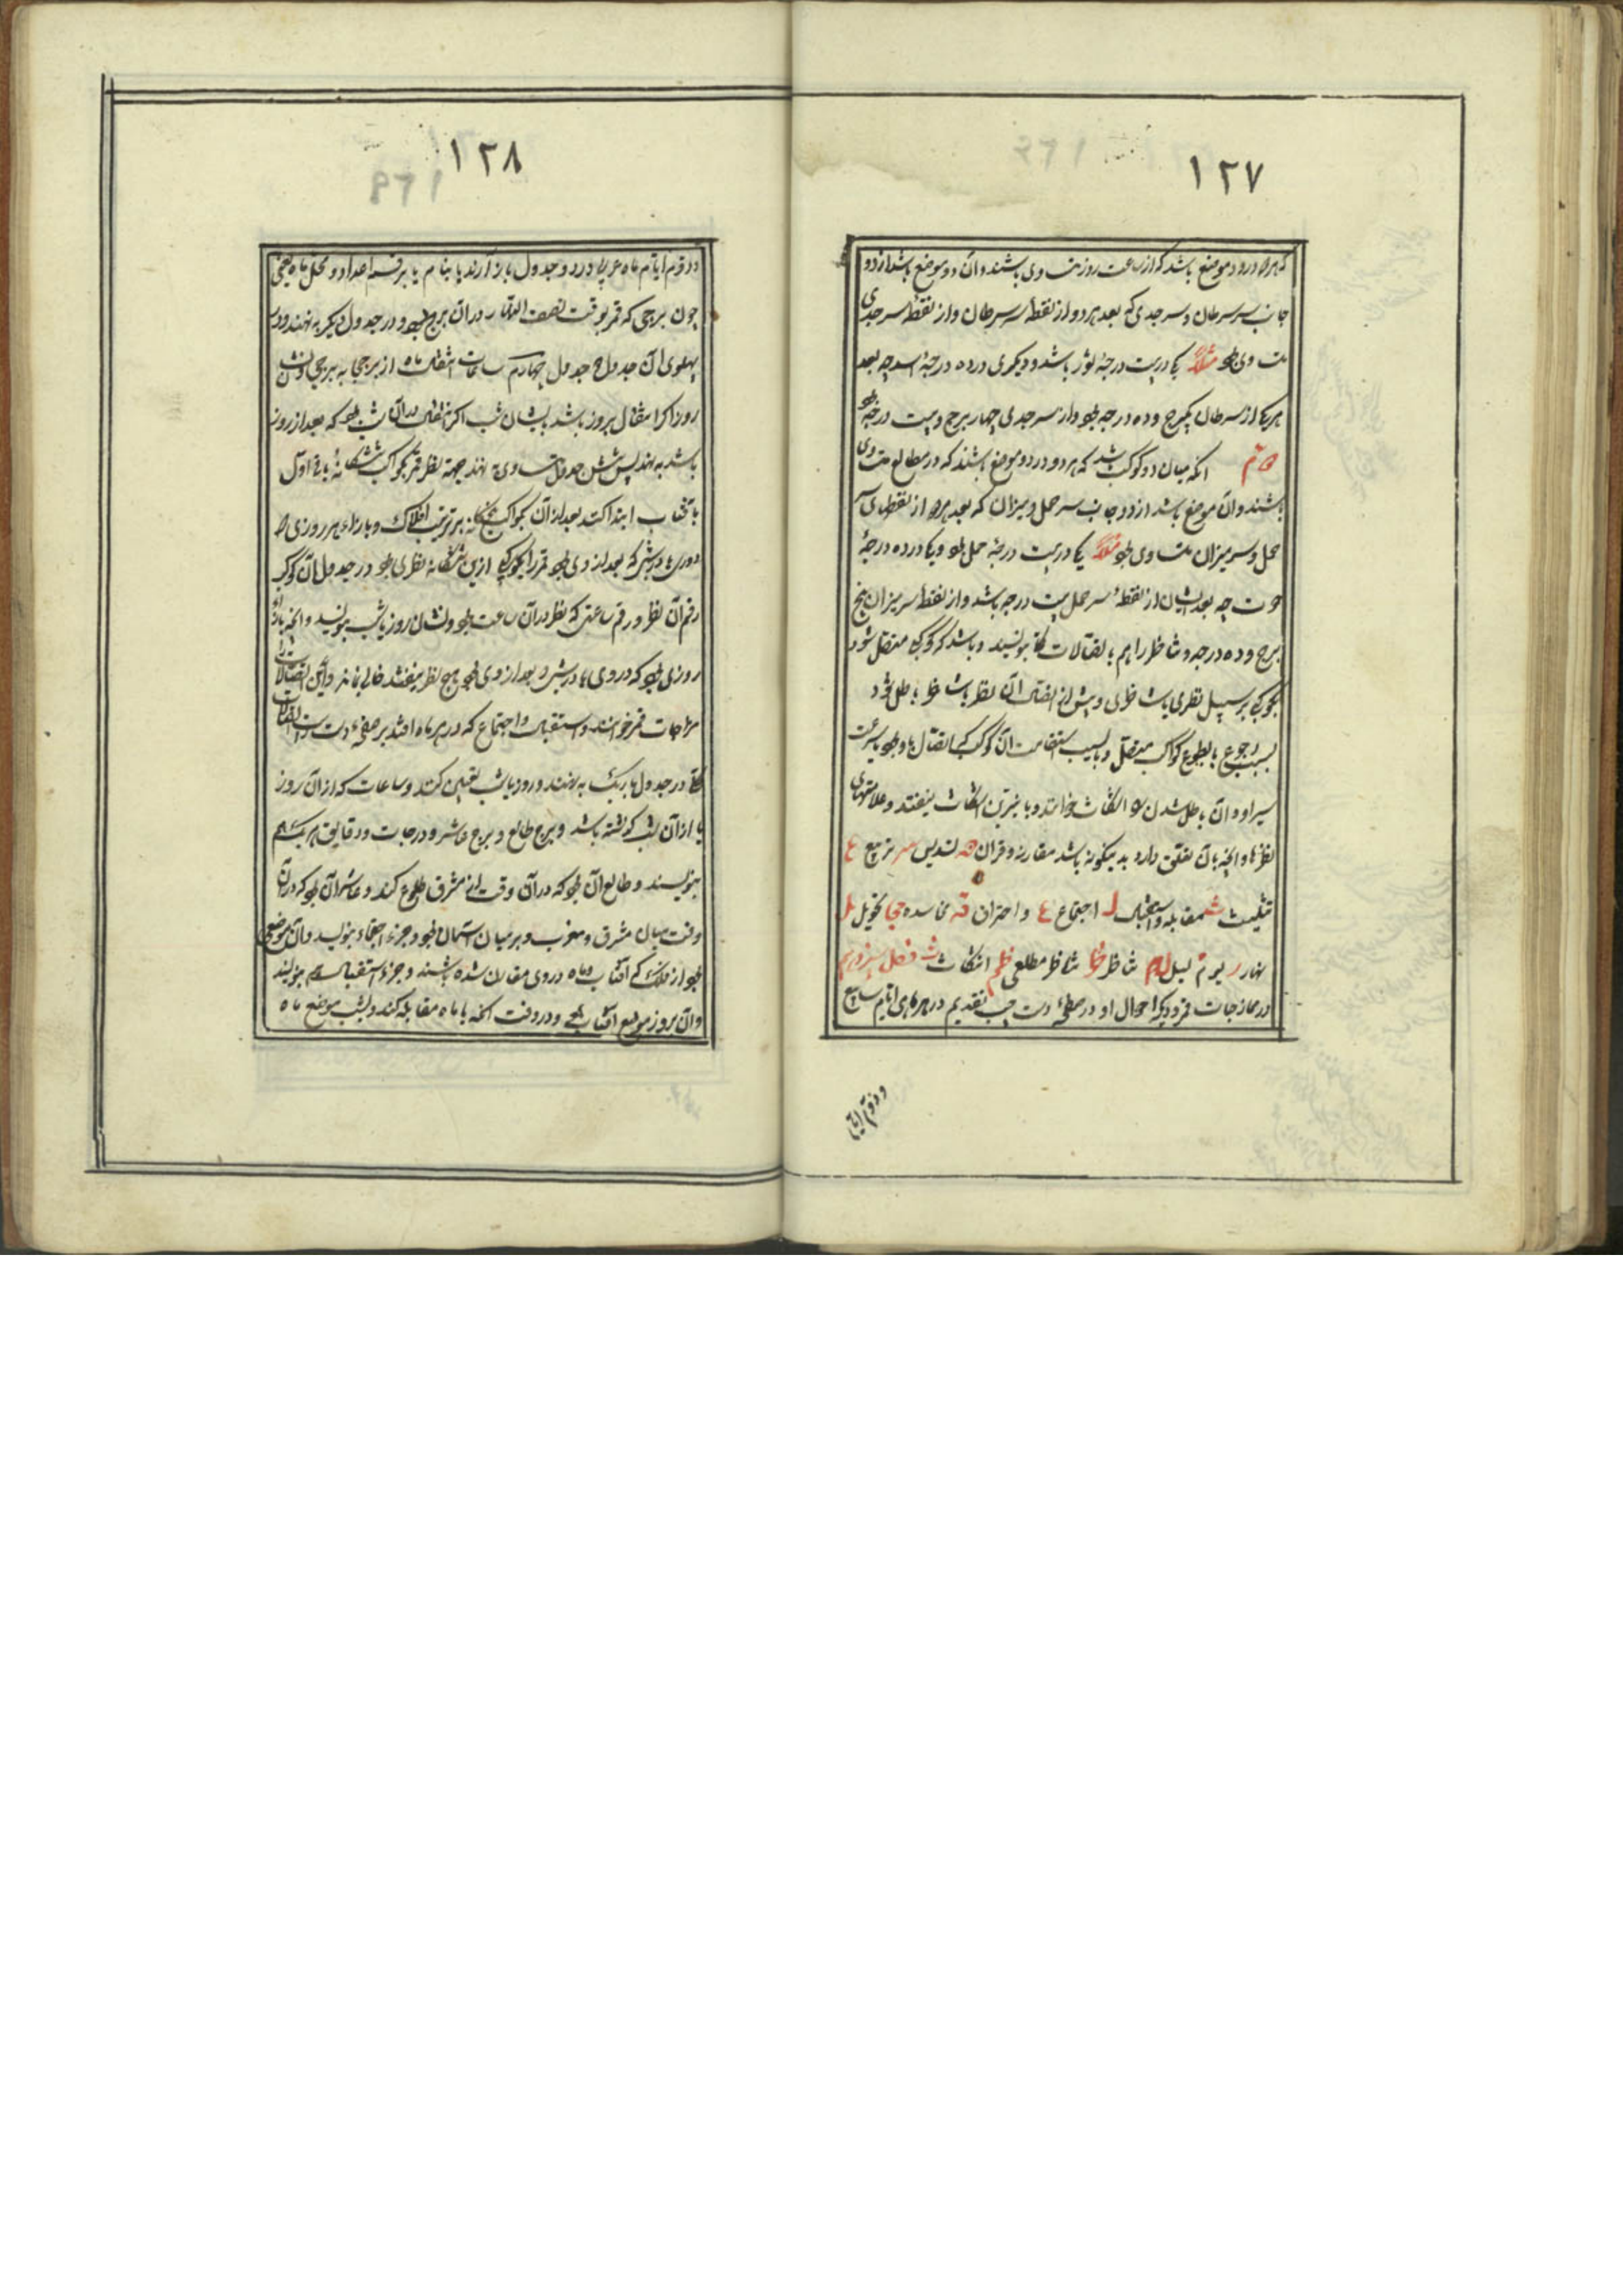 ۱۲۷
که هر دو در دو موضع باشد که از ساعت روز متساوی باشند و آن دو موضع باشد از دو
جانب سر سرطان و سر جدی که بعد هر دو از نقطهٔ سر سرطان و از نقطهٔ سر جدی
متساوی بود مثلاً یکی در بیست درجهٔ ثور باشد و دیگری در ده درجهٔ اسد چه بعد
هر یکی از سرطان یکبرج و ده درجه بود و از سر جدی چهار برج و بیست درجه بود
آنکه میان دو کوکب باشد که هر دو در دو موضع باشند که در مطالع متساوی
باشند و آن موضع باشد از دو جانب سر حمل و میزان که بعد هر دو از نقطهای سر
حمل و سر میزان متساوی بود مثلاً یکی در بیست درجهٔ حمل بود و یکی در ده درجهٔ
حوت چه بعد ایشان از نقطهٔ سر حمل بیست درجه باشد و از نقطهٔ سر میزان پنج
برج و ده درجه و تناظر را هم باتصالات بنویسند و باشد که کوکبی متصل شود
بکوکبی بر سبیل نظری یا تناظری و پیش از اتصال آن نظر یا تناظر باطل شود
بسبب رجوع یا بطوء کواکب متصل و یا بسبب استقامت آن کوکب که اتصال با او بود یا سرعت
سیر او و آن باطل شدن را انتکاث خوانند و با نیرین انتکاث نیفتد و علامتهای
نظرها و آنچه بآن تعلق دارد بدینگونه باشد مقارنه و قران نه تسدیس س تربیع ع
تثلیث ث مقابله و استقبال ل اجتماع ع و احتراق ق نحاسده حی تحویل ل
نهار ر یوم م لیل ل تناظر ظ تناظر مطلعی ظم انتکاث ث فصل
در ممازجات قمر و دیگر احوال او در صفحهٔ دست چپ تقدیم در هر ماهی ایام اسابیع
و رقوم ایام
۱۲۸
و رقوم ایام ماه عربی در دو جدول باز آرند یا بنام یا برقم اعداد و محل ماه یعنی
چون برجی که قمر بوقت نصف النهار در آن برج بود در جدول دیگر بنهند و در
پهلوی آن جدول جدول چهارم ساعات انتقال ماه از برجی به برجی و نشان
روز اگر انتقال بروز باشد یا نشان شب اگر انتقال در آن شب بود که بعد از روز
باشد بنهند پس شش جدول متساوی بنهند جهة نظر قمر بکواکب ششگانهٔ باقی اول
بآفتاب ابتدا کنند بعد از آن بکواکب پنجگانه بر ترتیب افلاک و بازاء هر روزی
و در شبش که بعد از وی بود قمر را بکوکبی ازین ششگانه نظری بود در جدول آن کوکب
رقم آن نظر و رقم ساعتی که نظر در آن ساعت بود و نشان روز یا شب بنویسند و آنچه بازاء
روزی بود که در وی یا در شب که بعد از وی بود هیچ نظر نیفتد خالی بماند و این اتصالات را
مزاجات قمر خوانند و استقبال و اجتماع که در هر ماه افتد بر صفحهٔ دست راست اتصالات
در جدول باریک بنهند و روز یا شب تعیین کنند و ساعات که از آن روز
یا از آن شب گذشته باشد و برج طالع و برج عاشر و درجات و دقایق هر یک هم
بنویسند و طالع آن بود که در آن وقت از مشرق طلوع کند و عاشر آن بود که در آن
وقت میان مشرق و مغرب و بر میان آسمان بود و جزء اجتماع بنویسند و آن موضعی
بود از فلک که آفتاب و ماه در وی مقارن شده باشند و جزء استقبال هم بنویسند
و آن بروز موضع آفتاب بود در وقت آنکه با ماه مقابله کند و بشب موضع ماه